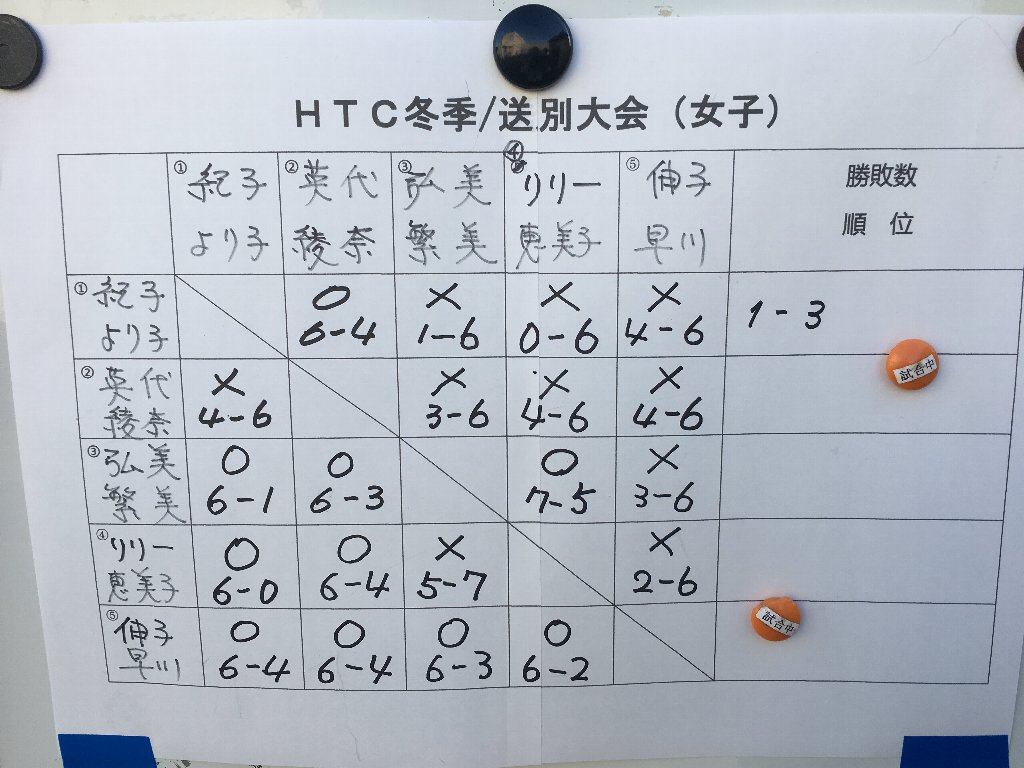 HTC冬季/送別大会（女子）
① 紀子 ② 英代 ③ 弘美 ④ リリー ⑤ 伸子 勝敗数
より子 綾奈 繁美 恵美子 早川 順 位
① 紀子 ○ × × ×
より子 6-4 1-6 0-6 4-6 1-3
② 英代 × × × ×
綾奈 4-6 3-6 4-6 4-6
試合中
③ 弘美 ○ ○ ○ ×
繁美 6-1 6-3 7-5 3-6
④ リリー ○ ○ × ×
恵美子 6-0 6-4 5-7 2-6
⑤ 伸子 ○ ○ ○ ○
早川 6-4 6-4 6-3 6-2
試合中